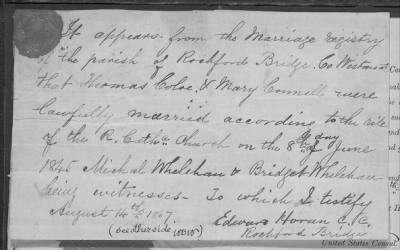 It appears from the Marriage registry
of the parish of Rochford Bridge. Co Westmeat
that Thomas Coloe, & Mary Connell were
lawfully married according to the rite
of the R. Cath. Church on the 8th day of June
1845 Michal Whelehan & Bridget Whelehan
being witnesses— To which I testify
August 14th 1867. Edward Horan C. C.
Rochford Bridge
(see other side
United States Consul